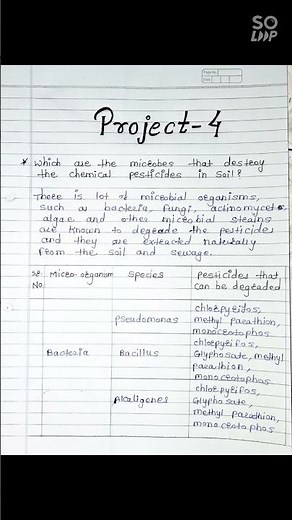 SO
LOOP
Page No.
Date
Project-4
* Which are the microbes that destroy
the chemical pesticides in soil?
There is lot of microbial organisms,
such as bacteria, fungi, actinomycetes
algae and other microbial strains
are known to degrade the pesticides
and they are extracted naturally
from the soil and sewage.
Sr. No. Micro-organism Species Pesticides that can be degraded
Pseudomonas chlorpyrifos,
methyl parathion,
monocrotophos
Bacteria Bacillus chlorpyrifos,
Glyphosate, methyl
parathion,
monocrotophos
Alcaligenes chlorpyrifos,
Glyphosate,
methyl parathion,
monocrotophos